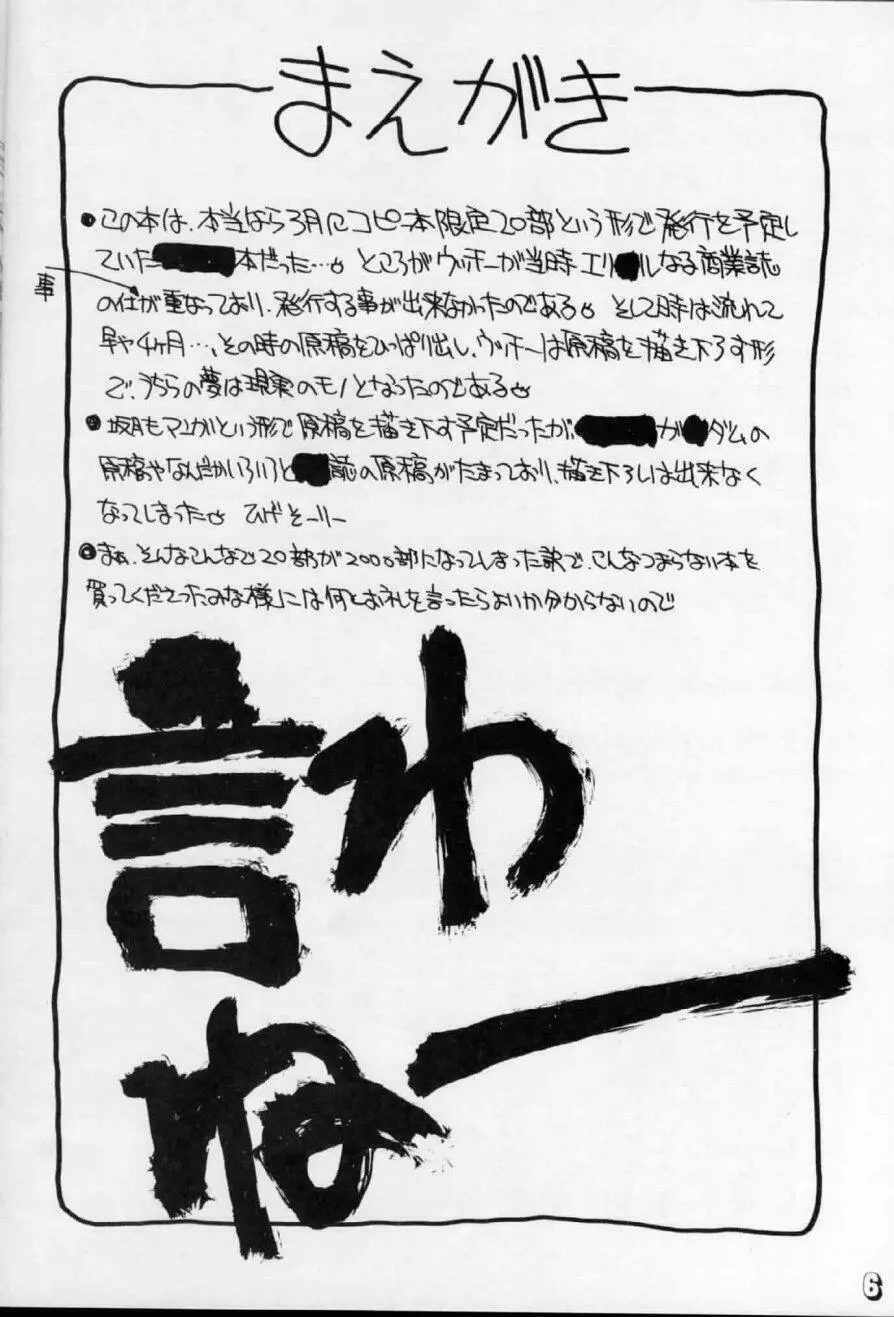 まえがき
●この本は、本当なら3月にコピー本限定20部という形で発行を予定し
ていた本だった…。ところがウッチーが当時エリルなる商業誌
事
の仕が重なっており、発行する事が出来なかったのである。そして時は流れて
早や4ヶ月…、その時の原稿をひっぱり出し、ウッチーは原稿を描き下ろす形
で、うちらの夢は現実のモノとなったのである。
●坂月もマンガという形で原稿を描き下す予定だったが、がダムの
原稿やなんだかいろいろと誌の原稿がたまっており、描き下ろしは出来なく
なってしまった。ひげそーりー
●まぁ、そんなこんなで20部が2000部になってしまった訳で、こんなつまらない本を
買ってくださったみな様には何とお礼を言ったらよいか分からないので
言わ
ねー
6